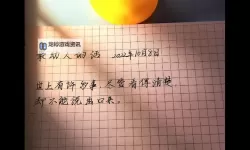 游戏资讯
求动人的话 2022年10月8日
世上有许多事，尽管看得清楚，
却不能说出口来。